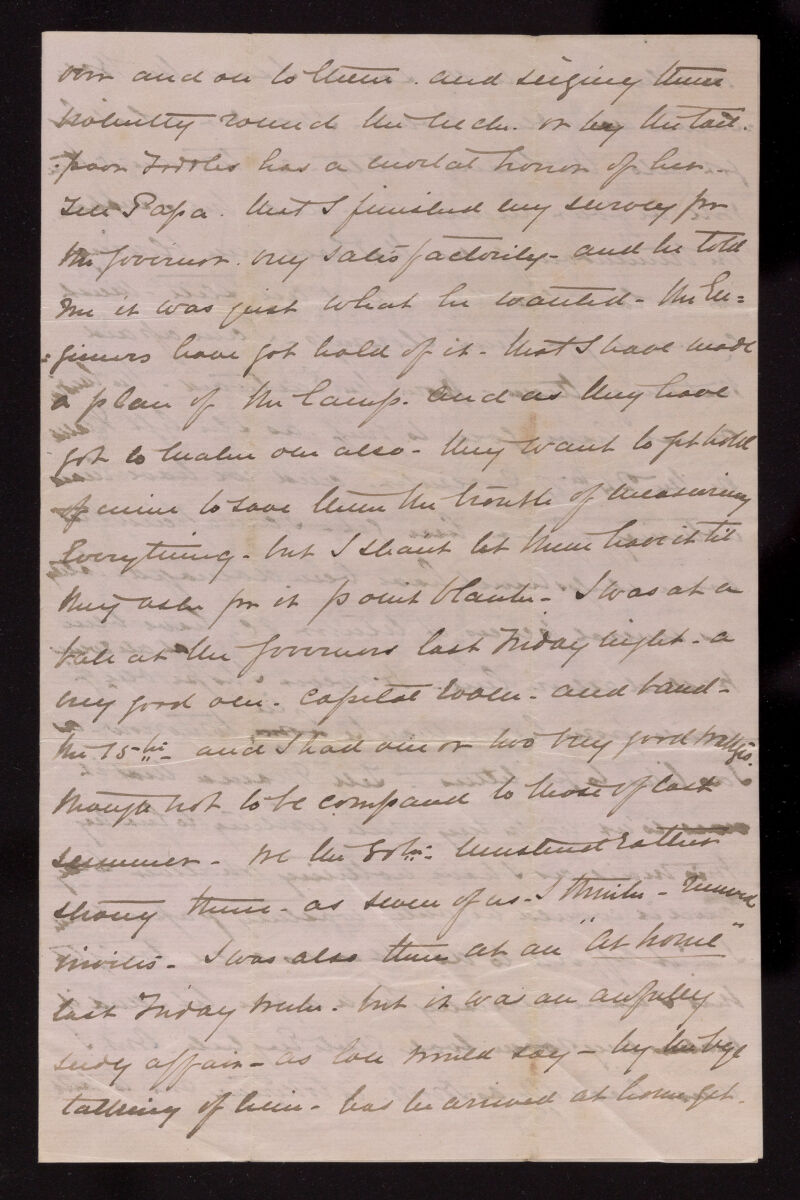 over and on to them. and seizing them
violently round the neck. or by the tail.
poor Toddles has a mortal horror of her -
Tell Papa. that I finished my survey for
the Governor. very satisfactorily - and he told
me it was just what he wanted - the En=
=gineers have got hold of it - that I have made
a plan of the Camp. and as they have
got to make one also - they want to get hold
of mine to save them the trouble of measuring
everything - but I shan't let them have it til
they ask for it point blank - I was at a
ball at the Governors last Friday night - a
very good one - Capital Room - and band -
the 15th and I had one or two very good waltzes.
though not to be compared to those of last
summer - We the 80th mustered rather
strong there - as seven of us - I think - received
invites - I was also there at an "At home"
last Friday week - but it was an awfully
seedy affair - as Lou would say - by the bye
talking of him - has he arrived at home yet -